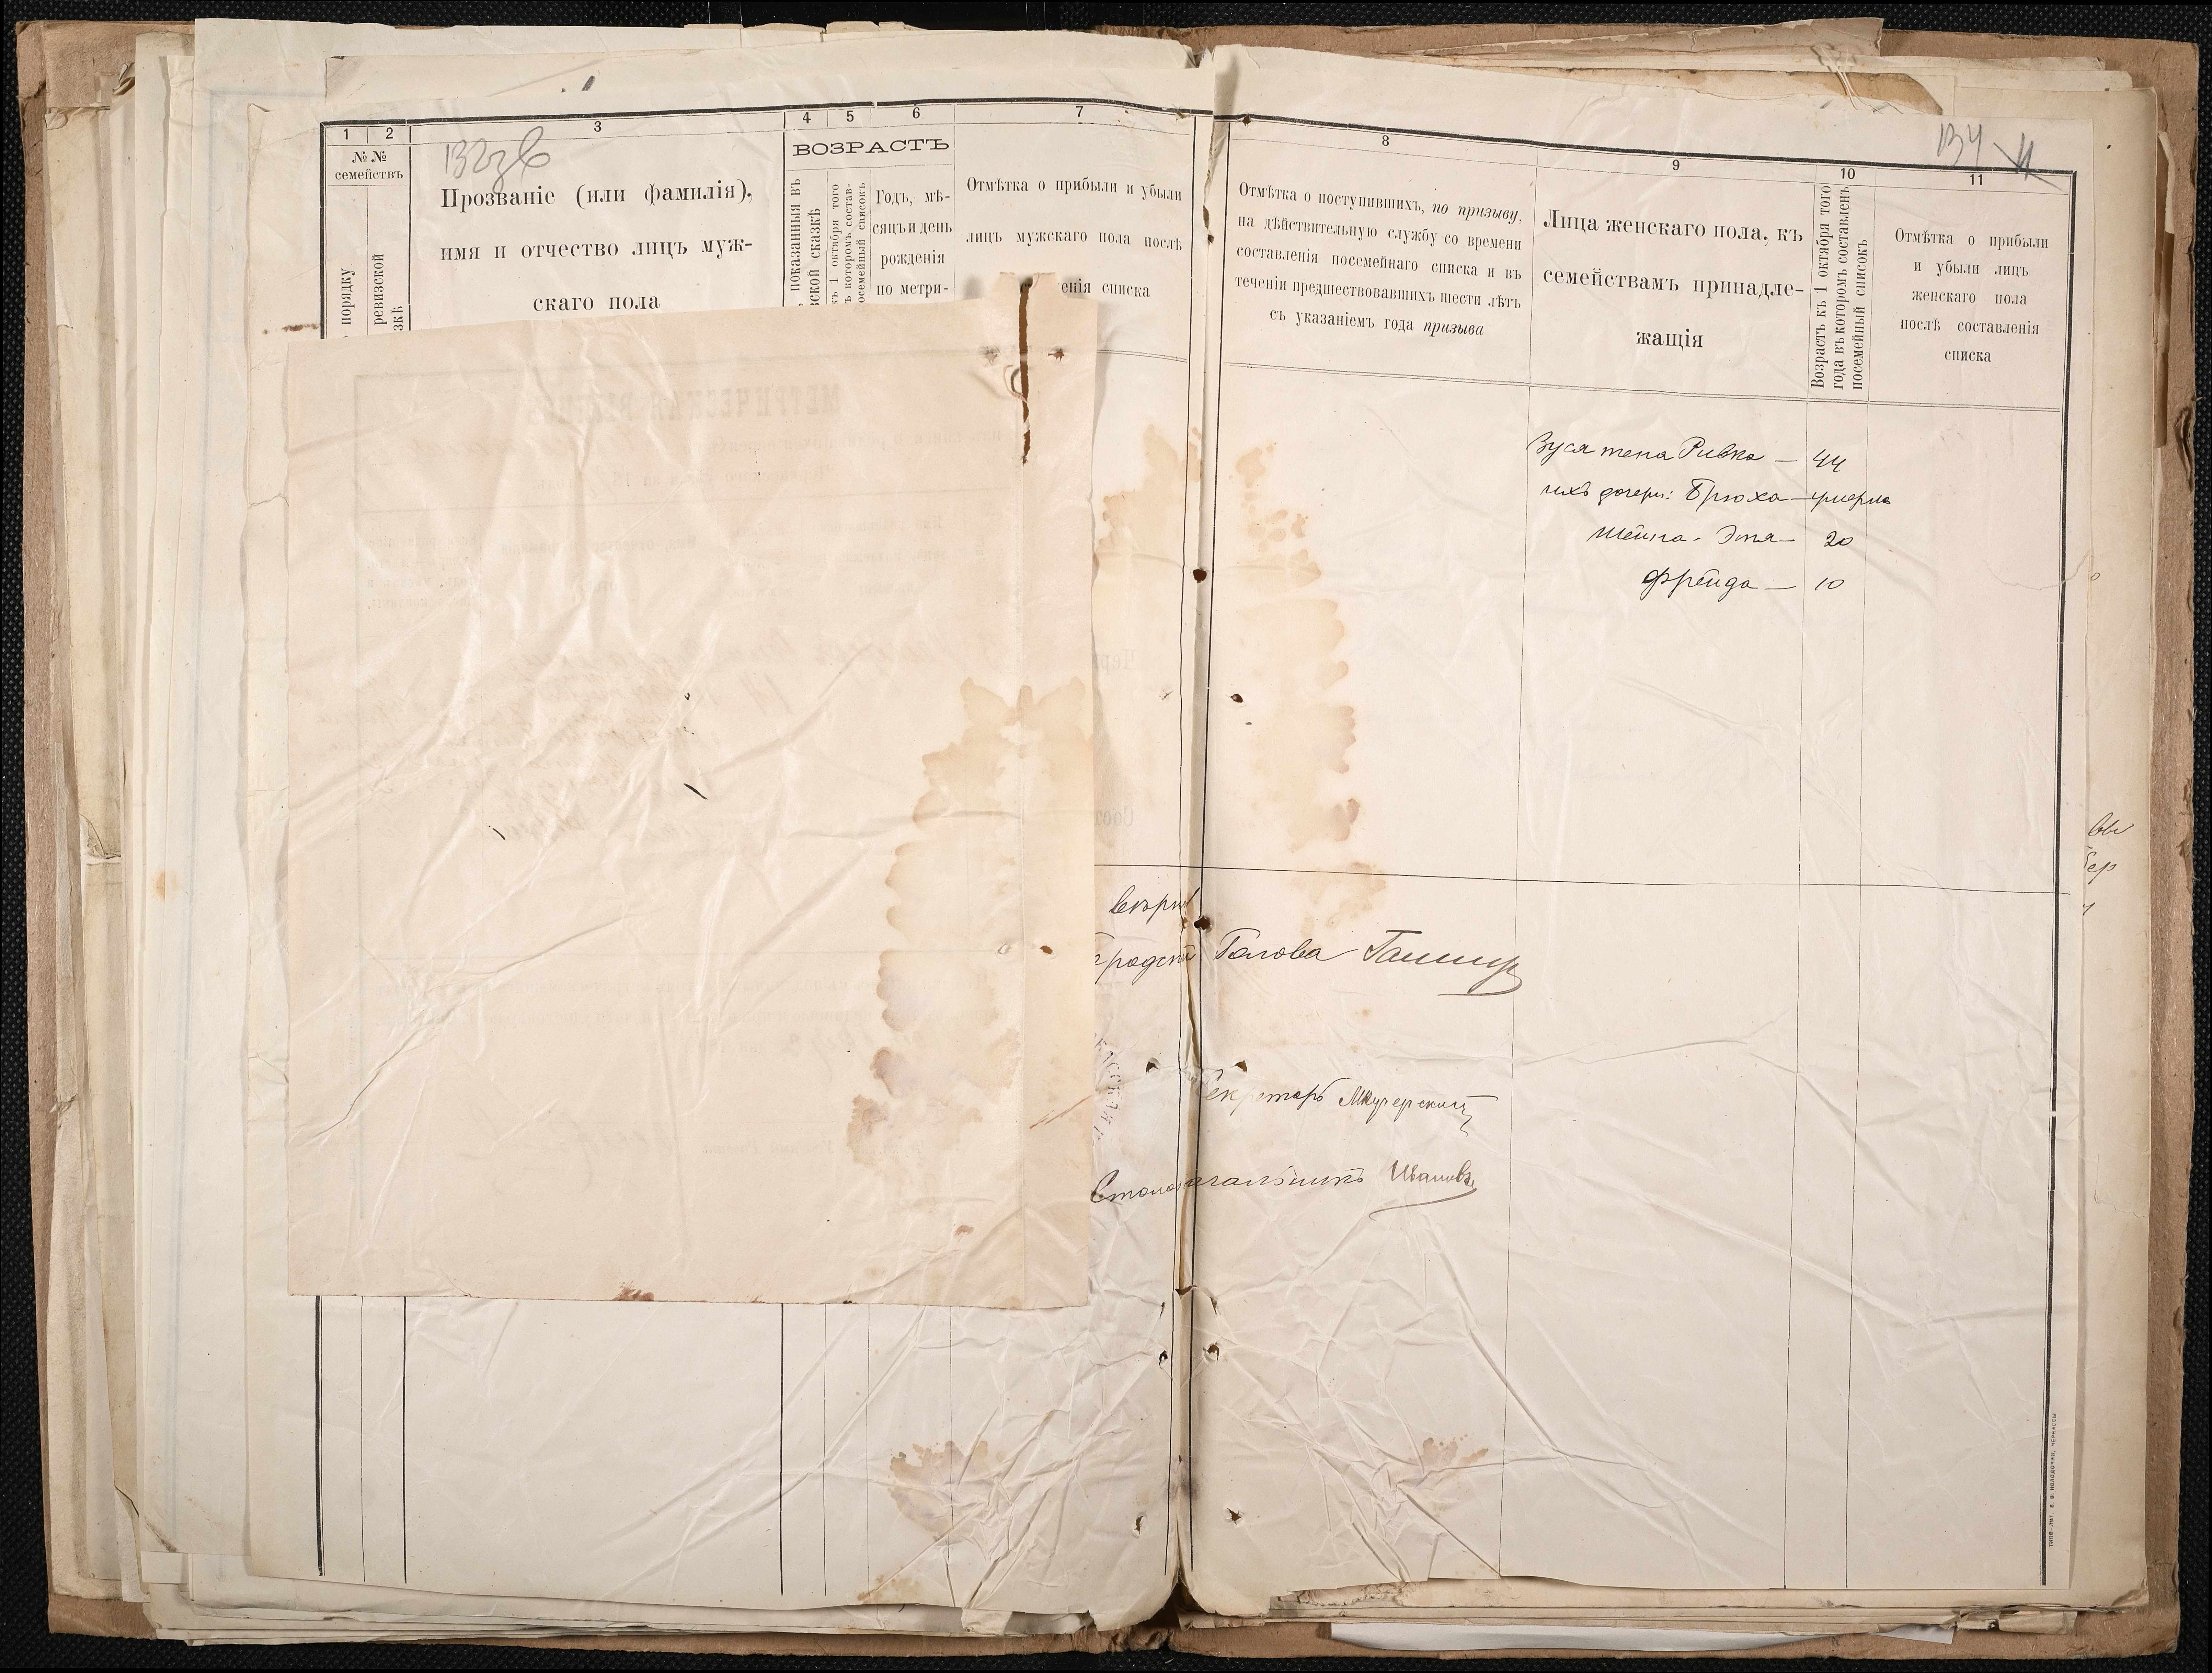 1 2 3 4 5 6 7
132зв
№ №
семействъ
порядку
ревизской
зкѣ
Прозваніе (или фамилія),
имя и отчество лицъ муж-
скаго пола
ВОЗРАСТЪ
показанныя въ
ской сказкѣ
къ 1 октября того
въ которомъ состав-
посемейный списокъ
Годъ, мѣ-
сяцъ и день
рожденія
по метри-
Отмѣтка о прибыли и убыли
лицъ мужскаго пола послѣ
енія списка
МЕТРИЧЕСКАЯ
вѣрно
Городской Голова
Секретарь
Столоначальникъ Ивановъ
134
8 9 10 11
Отмѣтка о поступившихъ, по призыву,
на дѣйствительную службу со времени
составленія посемейнаго списка и въ
теченіи предшествовавшихъ шести лѣтъ
съ указаніемъ года призыва
Лица женскаго пола, къ
семействамъ принадле-
жащія
Возрастъ къ 1 октября того
года въ которомъ составленъ
посемейный списокъ
Отмѣтка о прибыли
и убыли лицъ
женскаго пола
послѣ составленія
списка
Зуся жена Ривка — 44
ихъ дочери: Брюха — умерла
Шейна-Этя — 20
Фрейда — 10